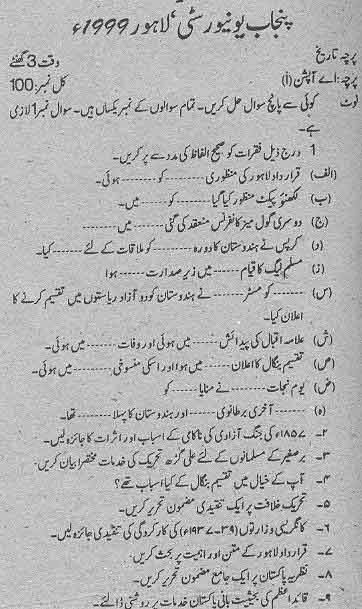 پنجاب یونیورسٹی، لاہور 1999ء
پرچہ تاریخ وقت 3 گھنٹے
پرچہ: اے آپشن (i) کل نمبر: 100
نوٹ کوئی سے پانچ سوال حل کریں۔ تمام سوالوں کے نمبر یکساں ہیں۔ سوال نمبر 1 لازمی
ہے۔
1 درج ذیل فقرات کو صحیح الفاظ کی مدد سے پر کریں۔
(الف) قرارداد لاہور کی منظوری -------- کو -------- ہوئی۔
(ب) لکھنؤ پیکٹ منظور کیا گیا -------- کو -------- میں۔
(ج) دوسری گول میز کانفرنس منعقد کی گئی -------- میں --------۔
(د) کرپس نے ہندوستان کا دورہ -------- کو ملاقات کے لئے -------- کیا۔
(ز) مسلم لیگ کا قیام -------- میں زیر صدارت -------- ہوا
(س) -------- کو مسٹر -------- نے ہندوستان کو دو آزاد ریاستوں میں تقسیم کرنے کا
اعلان کیا۔
(ش) علامہ اقبال کی پیدائش -------- میں ہوئی اور وفات -------- میں ہوئی۔
(ص) تقسیم بنگال کا اعلان -------- میں ہوا اور اسکی منسوخی -------- میں ہوئی۔
(ض) یوم نجات -------- نے منایا -------- کو
(ہ) -------- آخری برطانوی -------- اور ہندوستان کا پہلا -------- تھا۔
۲۔ ۱۸۵۷ء کی جنگ آزادی کی ناکامی کے اسباب اور اثرات کا جائزہ لیں۔
۳۔ برصغیر کے مسلمانوں کے لئے علی گڑھ تحریک کی خدمات مختصراً بیان کریں۔
۴۔ آپ کے خیال میں تقسیم بنگال کے کیا اسباب تھے؟
۵۔ تحریک خلافت پر ایک تنقیدی مضمون تحریر کریں۔
۶۔ کانگریسی وزارتوں (۳۹-۱۹۳۷ء) کی کارکردگی کی تنقیدی جائزہ لیں۔
۷۔ قرارداد لاہور کے متن اور اہمیت پر بحث کریں۔
۸۔ نظریہ پاکستان پر ایک جامع مضمون تحریر کریں۔
۹۔ قائداعظم کی بحیثیت بانی پاکستان خدمات پر روشنی ڈالئے۔